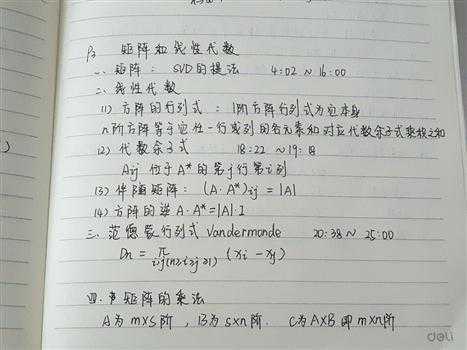 P2 矩阵和线性代数
一、矩阵： SVD的提法 4:02 ~ 16:00
二、线性代数
(1) 方阵的行列式：1阶方阵行列式为它本身
n阶方阵等于它任一行或列的各元素和对应代数余子式乘积之和
(2) 代数余子式 18:22 ~ 19:
Aij 位于A*的第j行第i列
(3) 伴随矩阵： (A·A*)ij = |A|
(4) 方阵的逆 A·A*=|A|·I
三、范德蒙行列式 Vandermonde 20:38 ~ 25:00
Dn = π i,j(n≥i≥j≥1) (xi - xj)
四. 矩阵的乘法
A为m×s阶，B为s×n阶. C为A×B 即m×n阶
deli